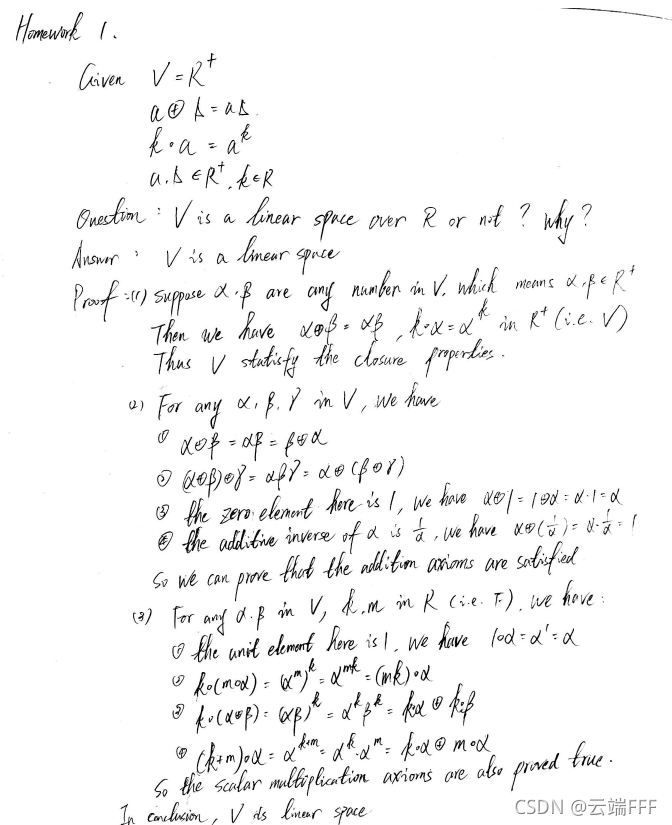 Homework 1.
Given V = R⁺
a ⊕ b = ab
k∘a = aᵏ
a.b ∈ R⁺, k∈R
Question : V is a linear space over R or not ? why ?
Answer : V is a linear space
Proof :(1) suppose α.β are any number in V. which means α.β ∈ R⁺
Then we have α⊕β = αβ , k∘α = αᵏ in R⁺ (i.e. V)
Thus V statisfy the closure properties.
(2) For any α, β, γ in V, we have
① α⊕β = αβ = β⊕α
② (α⊕β)⊕γ = αβγ = α⊕(β⊕γ)
③ the zero element here is 1, we have α⊕1 = 1⊕α = α·1 = α
④ the additive inverse of α is 1/α, we have α⊕(1/α) = α·1/α = 1
So we can prove that the addition axioms are satisfied
(3) For any α.β in V, k.m in R (i.e. F). we have :
① the unit element here is 1, we have 1∘α = α¹ = α
② k∘(m∘α) = (αᵐ)ᵏ = αᵐᵏ = (mk)∘α
③ k∘(α⊕β) = (αβ)ᵏ = αᵏβᵏ = k∘α ⊕ k∘β
④ (k+m)∘α = αᵏ⁺ᵐ = αᵏ·αᵐ = k∘α ⊕ m∘α
So the scalar multiplication axioms are also proved true.
In conclusion, V is linear space
CSDN @云端FFF